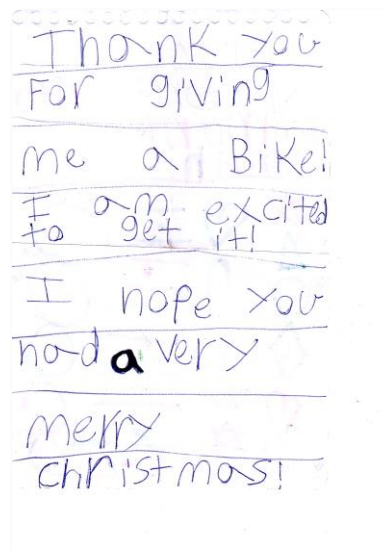 Thank you
For giving
me a Bike!
I am excited
to get it!
I hope you
had a very
merry
christmas!